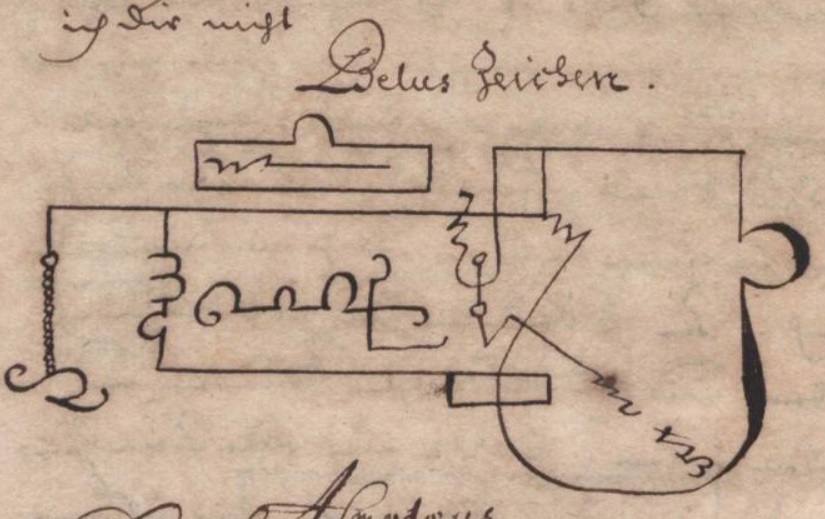 ich dir nicht
Belus Zeichen.